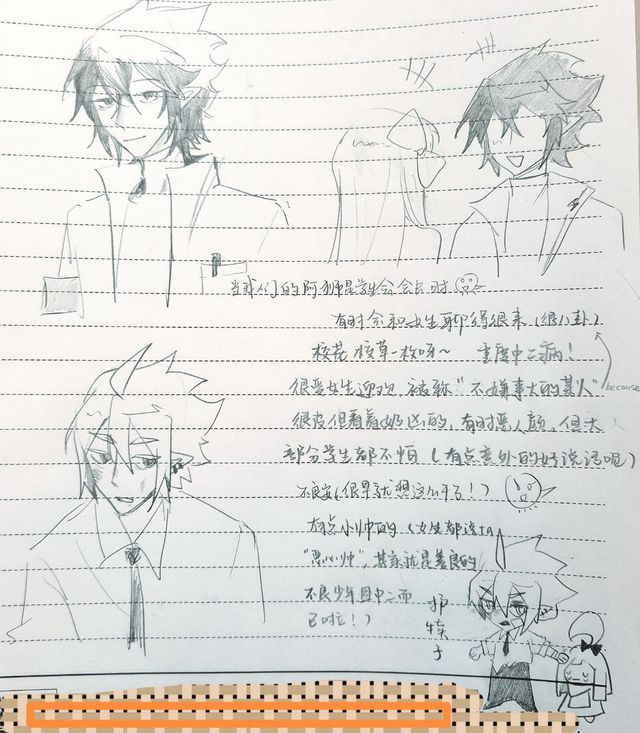 当我们的阿狮是学生会会长时
有时会和女生聊得很来(很八卦)
校花校草一枚呀~ 重度中二病!
很受女生迎欢,被称"不嫌事大的某人" because
很皮但看着奶凶的,有时恶人颜,但大
部分学生都不怕(有点意外的好说话呢)
不良安(很早就想这么干了!)
有点小帅的(女生都这么
"恶心帅",其实就是善良的
不良少年图中二而
已啦!)
护犊子